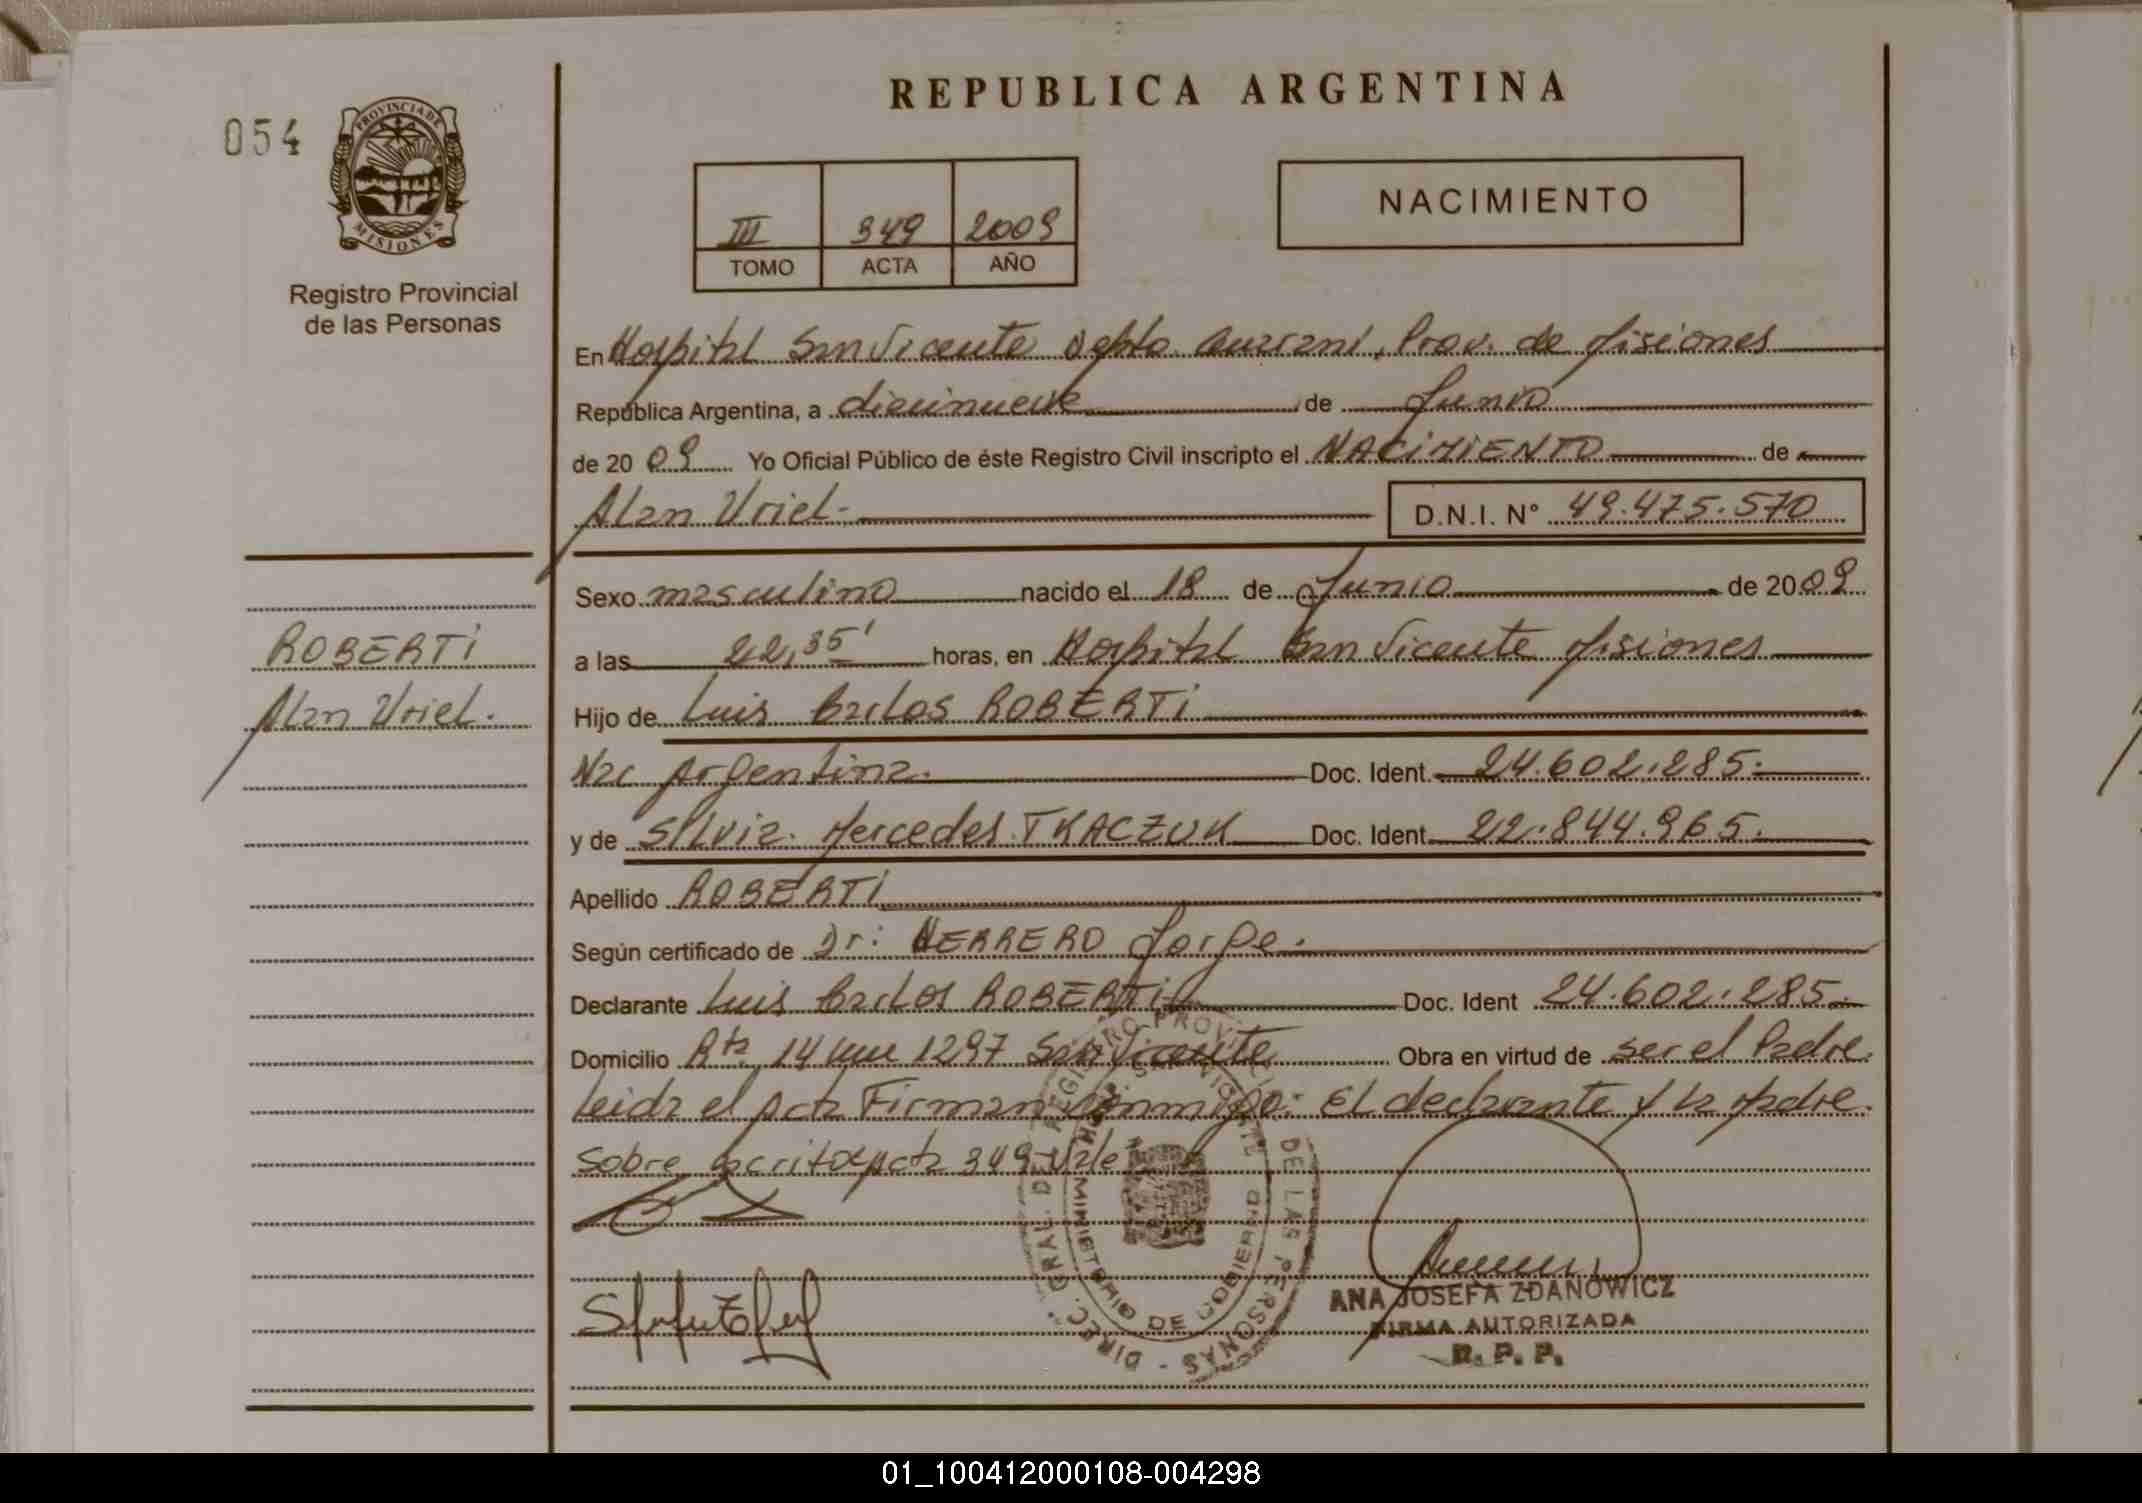 REPUBLICA ARGENTINA
054
PROVINCIA DE
MISIONES
Registro Provincial
de las Personas
III 349 2009
TOMO ACTA AÑO
NACIMIENTO
En Hospital San Vicente Dpto. Guaraní, Prov. de Misiones
República Argentina, a diecinueve de Junio
de 20 09 Yo Oficial Público de éste Registro Civil inscripto el NACIMIENTO de
Alan Uriel.- D.N.I. N° 49.475.570
Sexo masculino nacido el 18 de Junio de 20 09
a las 22,35' horas, en Hospital San Vicente Misiones
ROBERTI
Alan Uriel.
Hijo de Luis Carlos ROBERTI
Nac Argentina. Doc. Ident. 24.602.285.
y de Silvia Mercedes TKACZUK Doc. Ident. 22.844.965.
Apellido ROBERTI
Según certificado de Dr: HERRERO Jorge.
Declarante Luis Carlos ROBERTI Doc. Ident 24.602.285.
Domicilio Rta 14 km 1297 San Vicente Obra en virtud de ser el Padre.
Leida el Acta Firman conmigo: El declarante y la Madre.
Sobre escrito Acta 349 vale
DIREC. GRAL. DE REGISTRO PROVINCIAL DE LAS PERSONAS
SAN VICENTE
MINISTERIO DE GOBIERNO
ANA JOSEFA ZDANOWICZ
FIRMA AUTORIZADA
R. P. P.
01_100412000108-004298